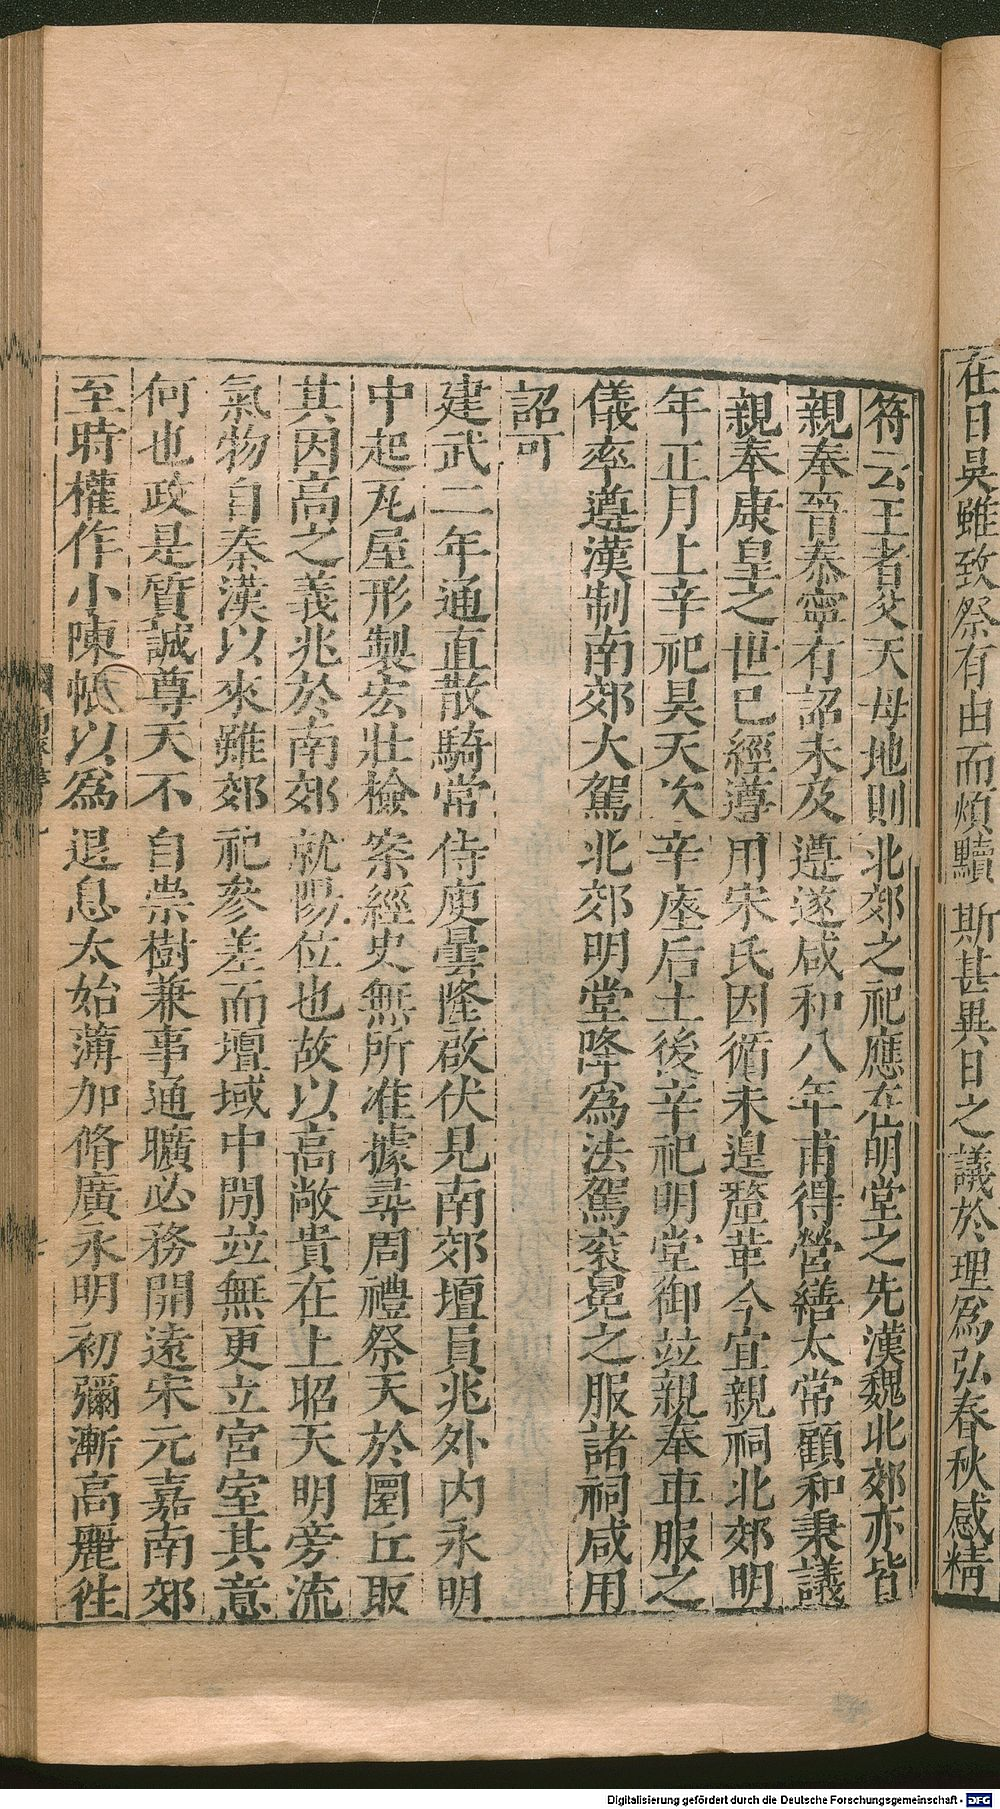 在日吳雖致祭有由而煩黷斯甚異日之議於理爲弘春秋感精
符云王者父天母地則北郊之祀應在萌堂之先漢魏北郊亦皆
親奉晉泰寧有詔未及遵遂咸和八年甫得營繕太常顧和秉議
親奉康皇之世已經遵用宋氏因循未遑釐革今宜親祠北郊明
年正月上辛祀昊天次辛瘞后土後辛祀明堂御竝親奉車服之
儀率遵漢制南郊大駕北郊明堂降爲法駕袞冕之服諸祠咸用
詔可
建武二年通直散騎常侍庾曇隆啟伏見南郊壇員兆外內永明
中起瓦屋形製宏壯檢案經史無所准據尋周禮祭天於圜丘取
其因高之義兆於南郊就陽位也故以高敞貴在上昭天明旁流
氣物自秦漢以來雖郊祀參差而壇域中閒竝無更立宮室其意
何也政是質誠尊天不自崇樹兼事通曠必務開遠宋元嘉南郊
至時權作小陳帳以爲退息太始薄加脩廣永明初彌漸高麗徃
Digitalisierung gefördert durch die Deutsche Forschungsgemeinschaft - DFG